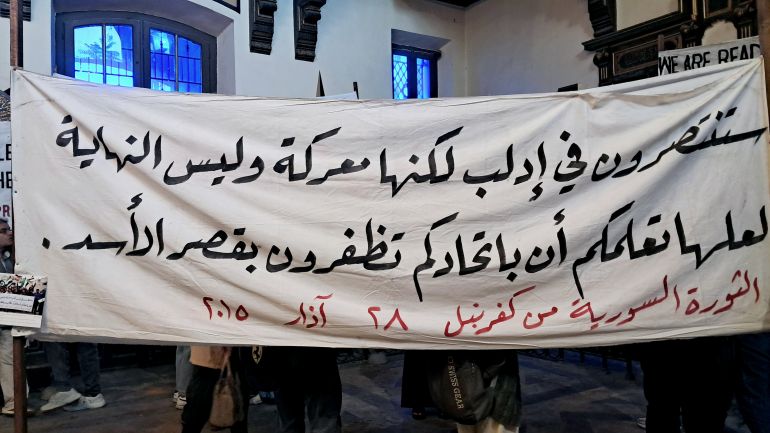 ستنتصرون في إدلب لكنها معركة وليس النهاية
لعلها تعلمكم أن باتحادكم تظفرون بقصر الأسد.
الثورة السورية من كفرنبل ٢٨ آذار ٢٠١٥
WE ARE READ
SWISS GEAR